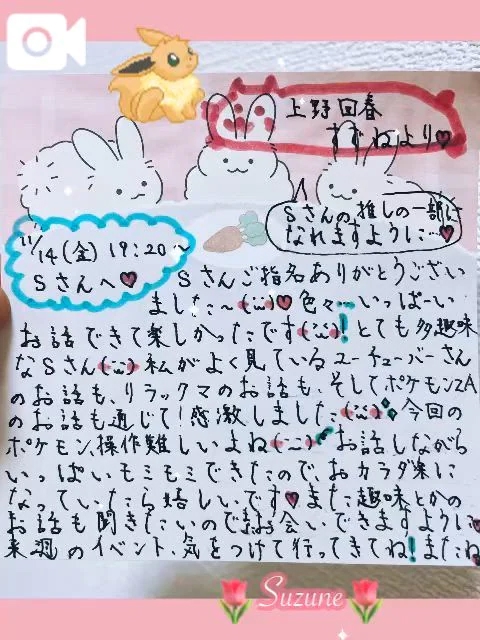 上野回春
すずねより♥
Sさんの推しの一部に
なれますように…♥
11/14(金) 19:20〜
Sさんへ♥
Sさんご指名ありがとうござい
ました〜(¨̮)♥色々…いっぱーい
お話できて楽しかったです(¨̮)！とても多趣味
なSさん(¨̮)私がよく見ているユーチューバーさん
のお話も、リラックマのお話も、そしてポケモンZA
のお話も通じて！感激しました(¨̮)今回の
ポケモン、操作難しいよね(¨̮)お話しながら
いっぱいモミモミできたので、おカラダ楽に
なっていたら嬉しいです♥また趣味とかの
お話も聞きたいのでお会いできますように♥
来週のイベント、気をつけて行ってきてね！またね
Suzune